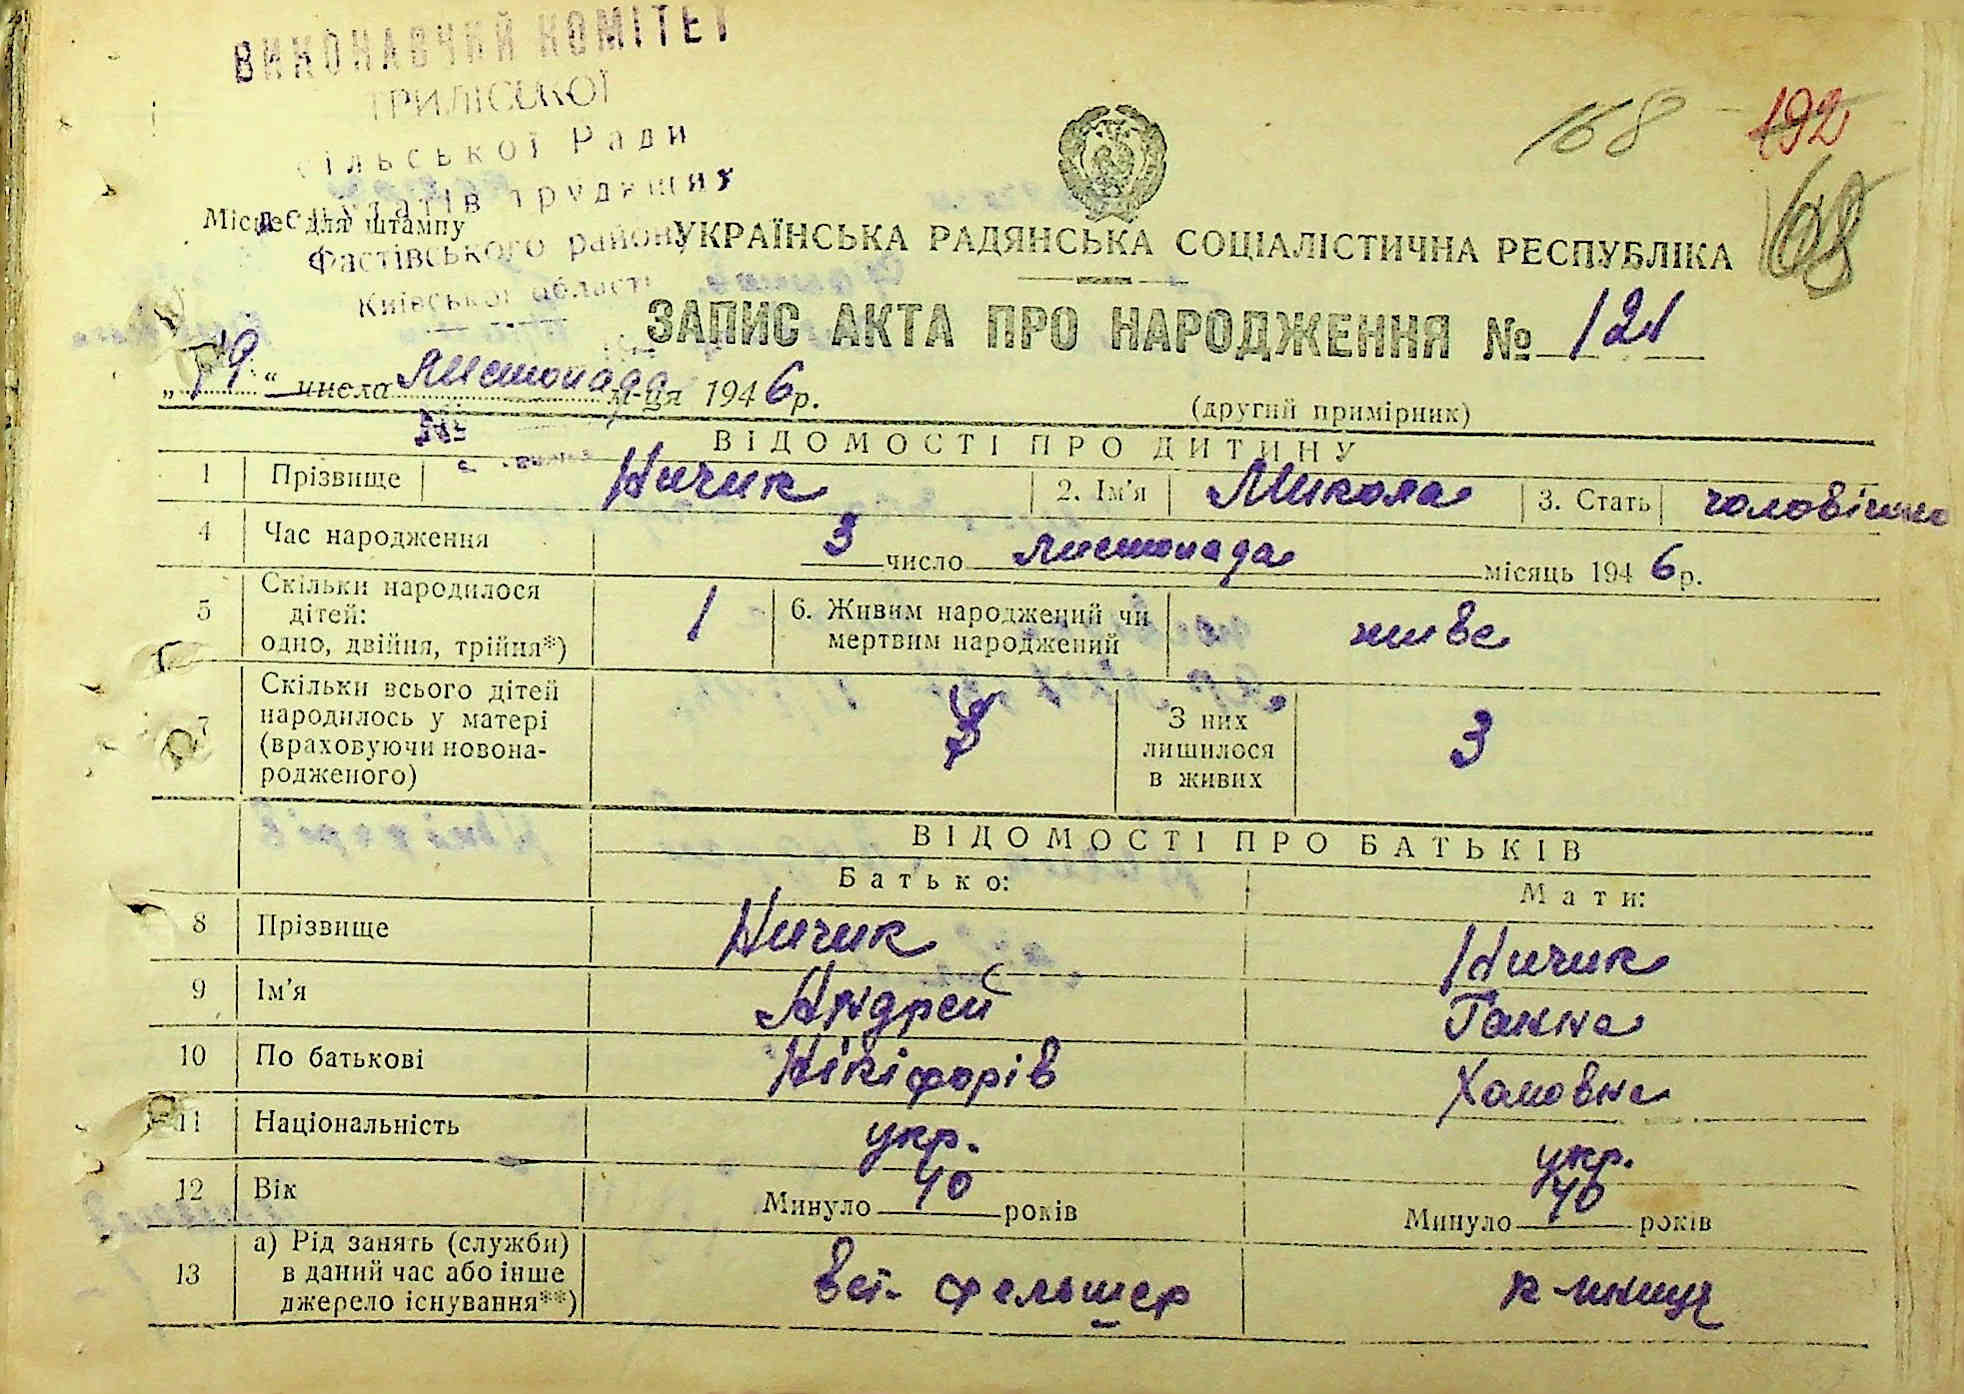 ВИКОНАВЧИЙ КОМІТЕТ
ТРИЛІСЬКОЇ
сільської Ради
депутатів трудящих
Місце для штампу
Фастівського району
Київської області
168 192
168
УКРАЇНСЬКА РАДЯНСЬКА СОЦІАЛІСТИЧНА РЕСПУБЛІКА
ЗАПИС АКТА ПРО НАРОДЖЕННЯ № 121
„19“ числа Листопада м-ця 1946р.
(другий примірник)
№
ВІДОМОСТІ ПРО ДИТИНУ
1 Прізвище Ничик 2. Ім'я Микола 3. Стать
4 Час народження 3 число листопада місяць 1946р.
5 Скільки народилося дітей: одно, двійня, трійня*) 1 6. Живим народжений чи мертвим народжений живе
7 Скільки всього дітей народилось у матері (враховуючи новонародженого) З них лишилося в живих 3
ВІДОМОСТІ ПРО БАТЬКІВ
Батько: Мати:
8 Прізвище Ничик Ничик
9 Ім'я Андрей Ганна
10 По батькові Нікіфорів Хомовна
11 Національність укр. укр.
12 Вік Минуло 40 років Минуло 40 років
13 а) Рід занять (служби) в даний час або інше джерело існування**) вет. фельшер